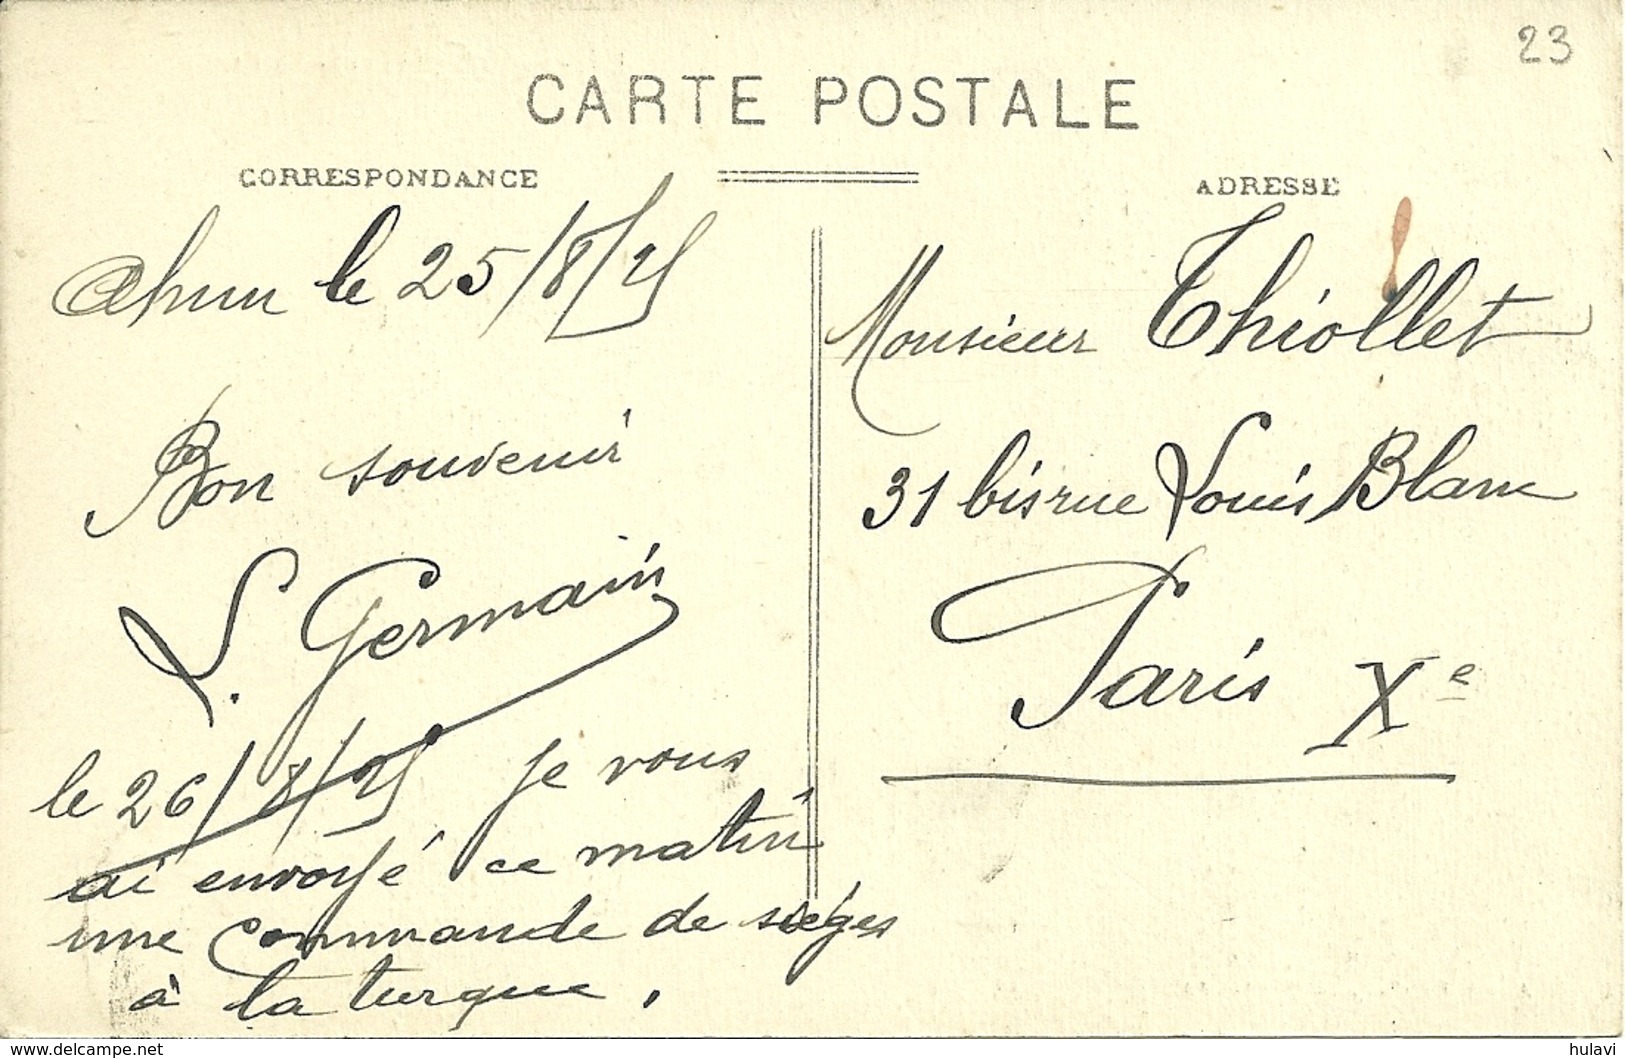 23
CARTE POSTALE
CORRESPONDANCE
ADRESSE
Ahun le 25/8/25
Bon souvenir
L. Germain
le 26/8/25 je vous
ai envoyé ce matin
une commande de sièges
à la turque.
Monsieur Thiollet
31 bis rue Louis Blanc
Paris Xe
www.delcampe.net
hulavi